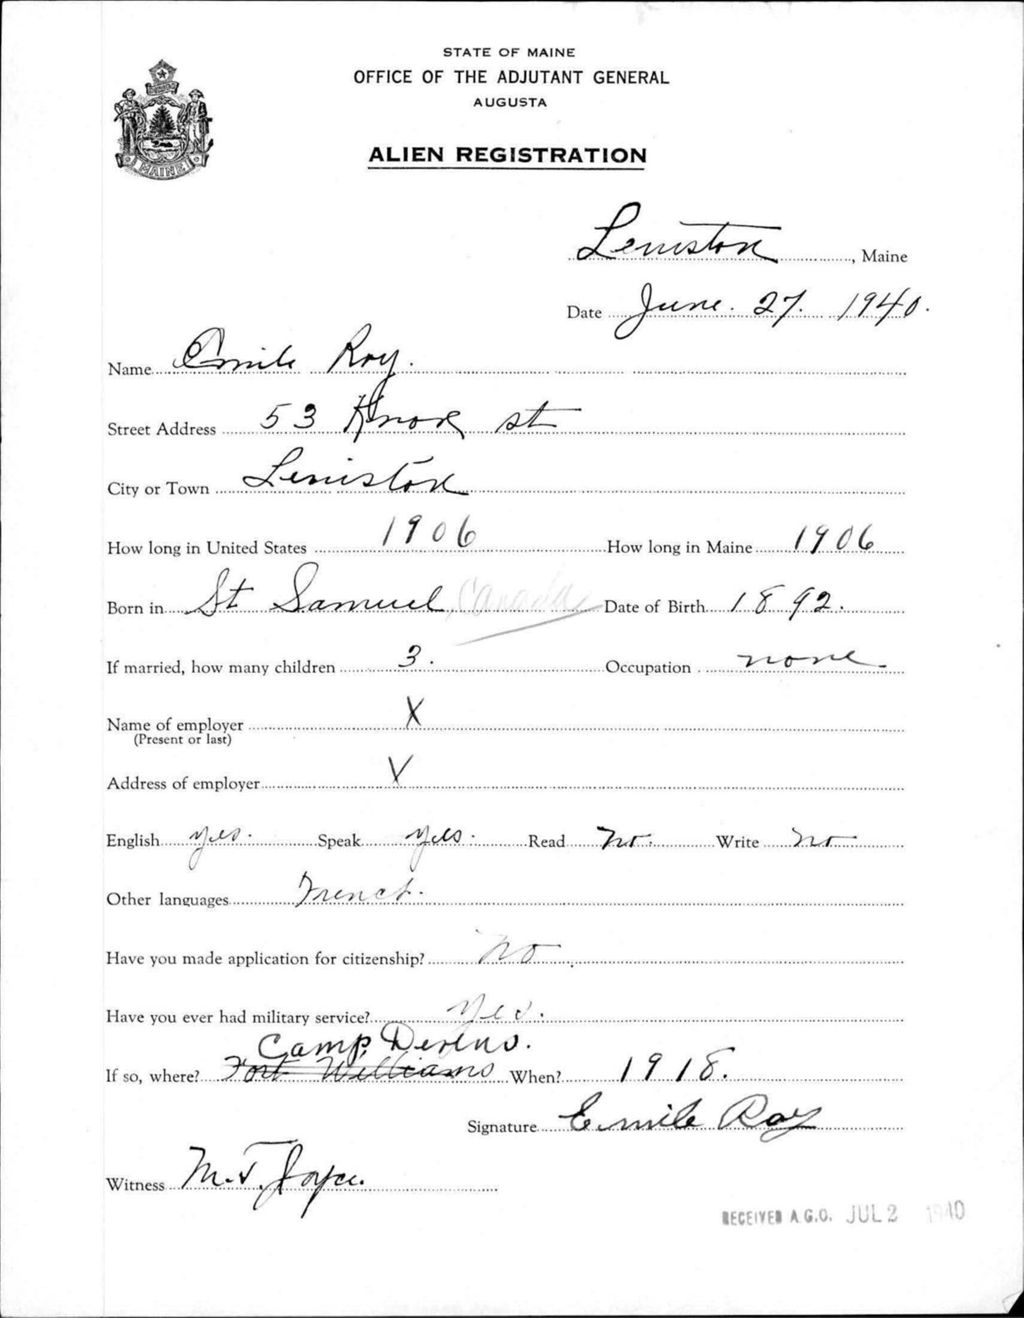 STATE OF MAINE
OFFICE OF THE ADJUTANT GENERAL
AUGUSTA
ALIEN REGISTRATION
MAINE
Lewiston, Maine
Date June. 27. 1940.
Name Emile Roy.
Street Address 53 Knox st
City or Town Lewiston
How long in United States 1906 How long in Maine 1906
Born in St Samuel, Canada Date of Birth 1892.
If married, how many children 3. Occupation none
Name of employer X
(Present or last)
Address of employer X
English yes. Speak yes. Read no. Write no
Other languages French.
Have you made application for citizenship? no.
Have you ever had military service? yes.
Camp Devens.
If so, where? Fort Williams When? 1918.
Signature Emile Roy
Witness M.T. Joyce.
RECEIVED A.G.O. JUL 2 1940